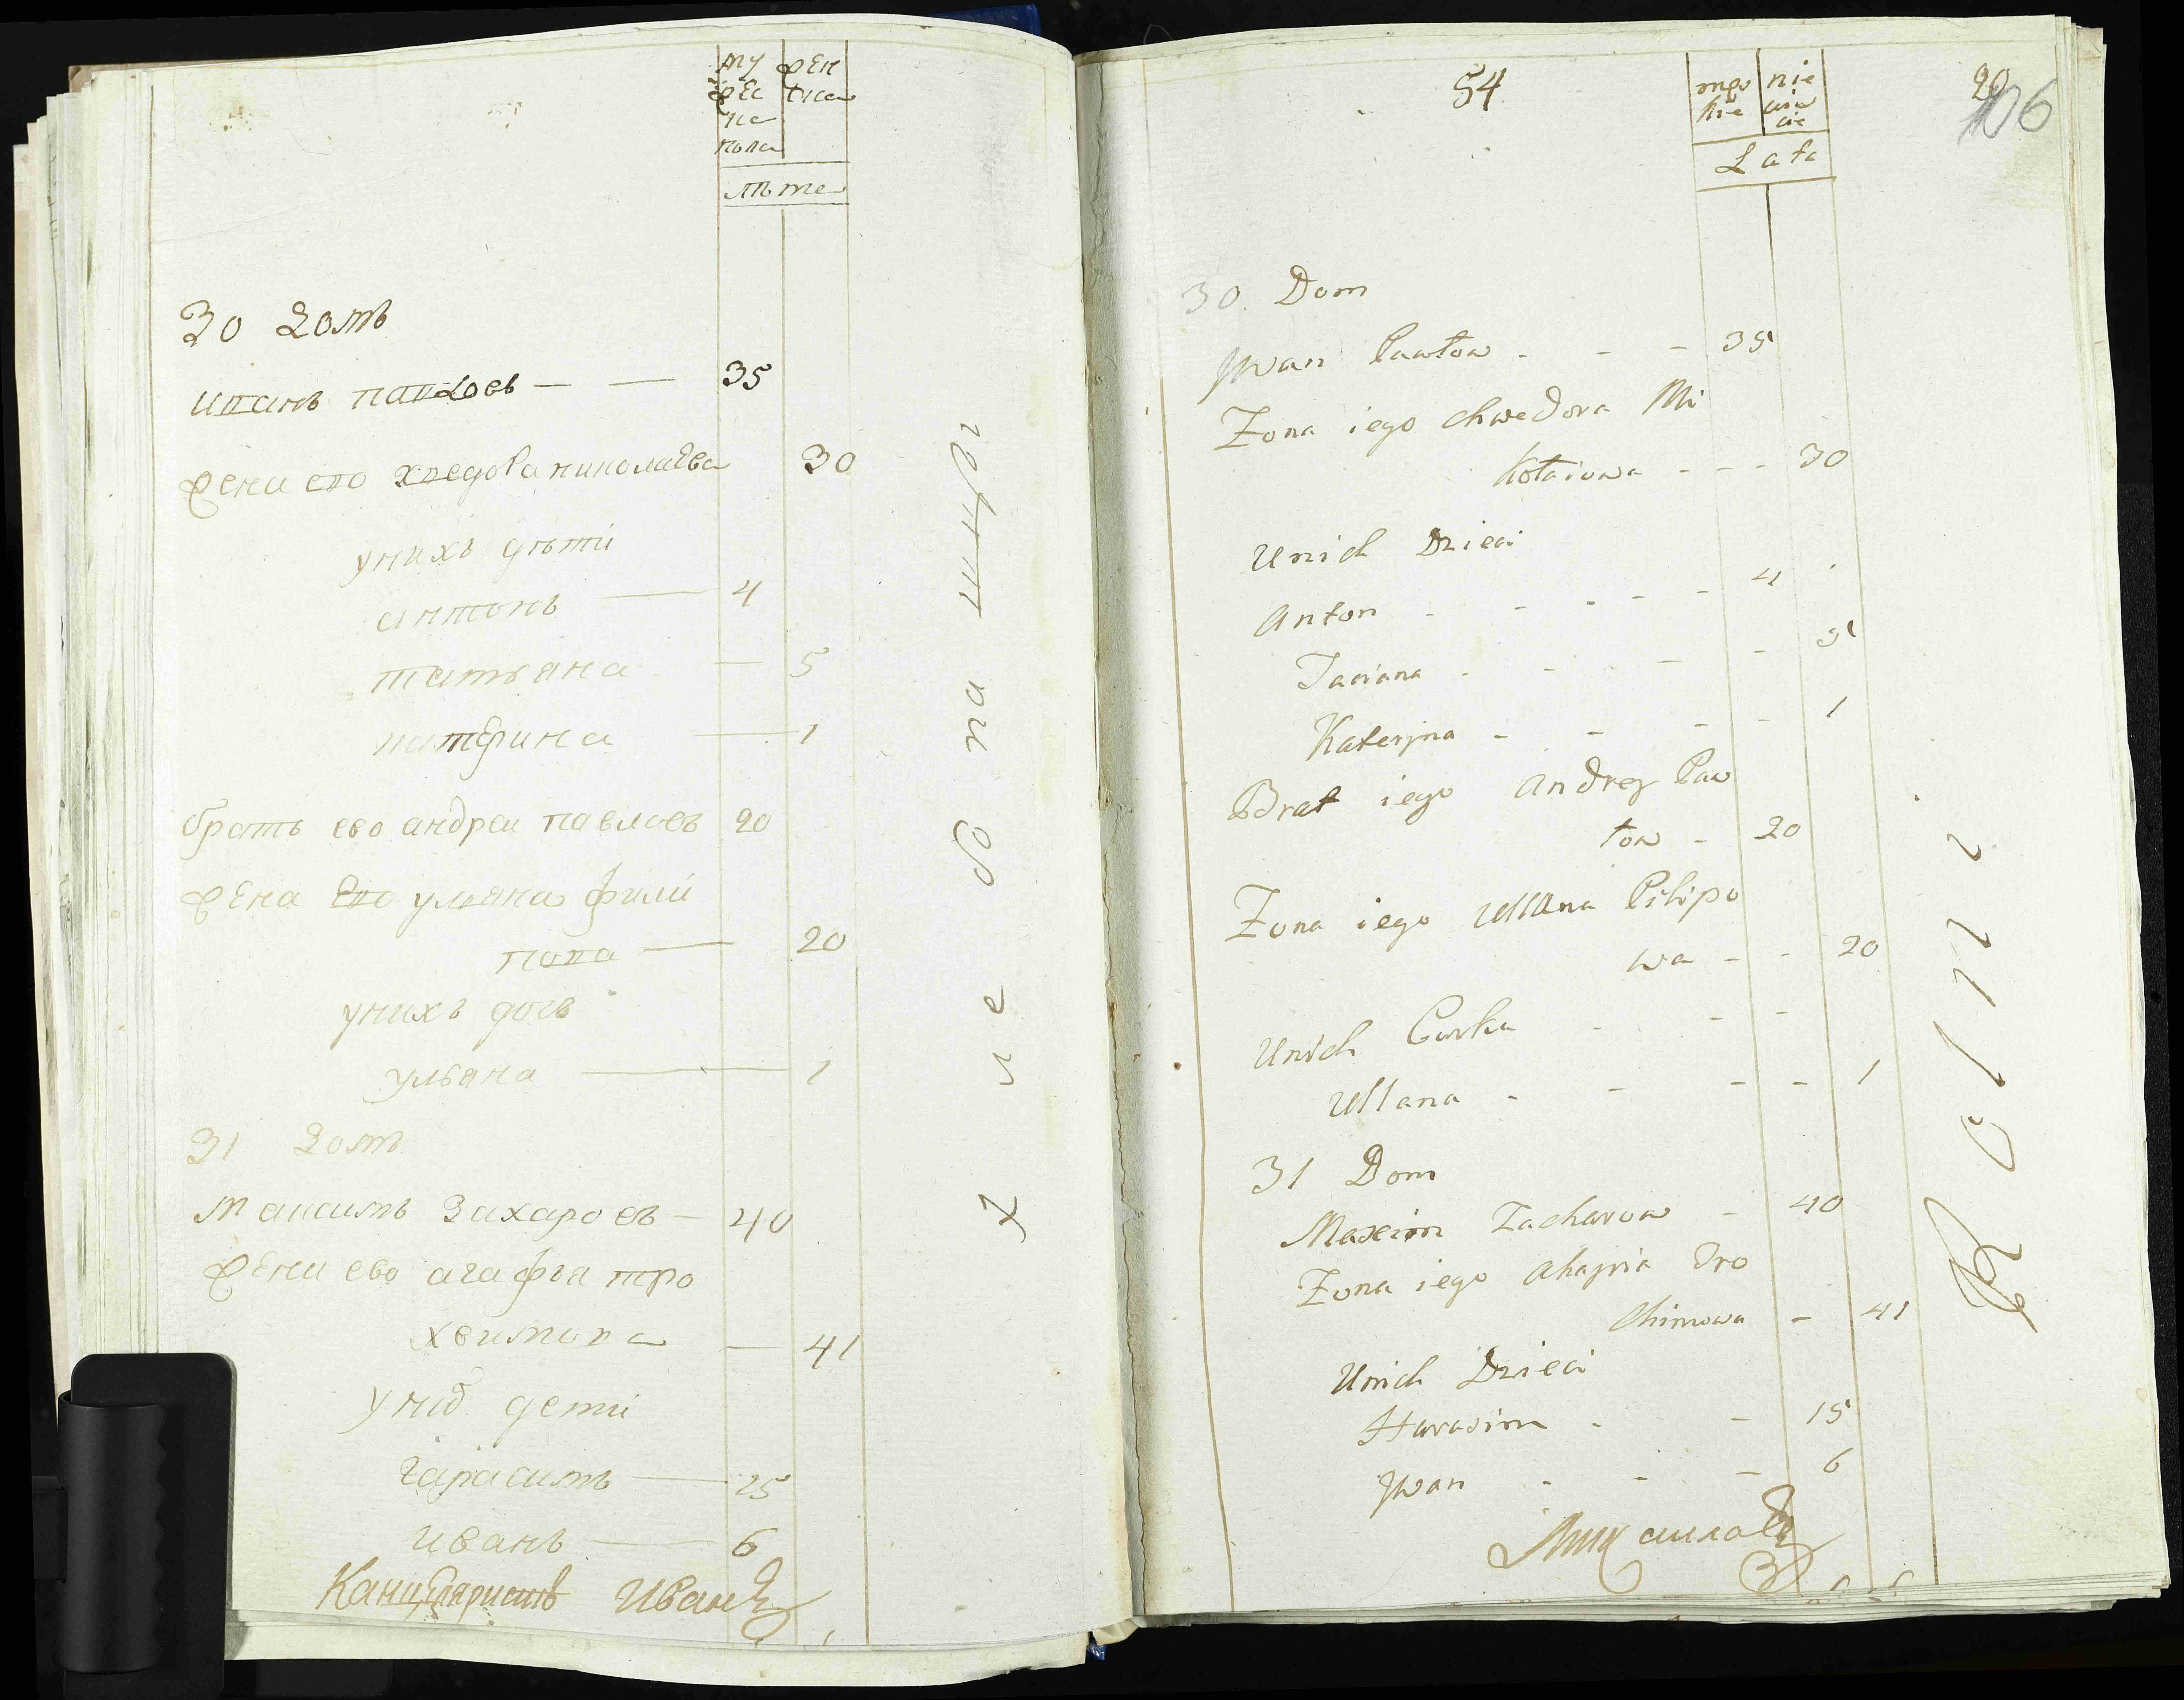 му жен
жес ска
ка
пола
лѣта
30 домъ
иванъ павловъ — — 35
жена ево хведора николаева 30
унихъ дѣти
антонъ — 4
татьяна — 5
катерина — 1
братъ ево андреи павловъ 20
жена ево ульяна фили
пова — 20
унихъ дочь
ульяна — 1
31 домъ
максимъ захаровъ — 40
жена ево агафья тро
хвимова — 41
унихъ дети
гарасимъ — 15
иванъ — 6
Канцеляристъ Иванъ
54
męs nie
kie wia
cie
Lata
20
106
30 Dom
Jwan Pawłow - - - 35
Zona iego Chwedora Mi
kołaiowa - - - 30
Unich Dzieci
Anton - - - - - 4
Taciana - - - - 5
Katerjna - - - - 1
Brat iego Andrey Paw
łow - 20
Zona iego Ullana Pilipo
wa - - 20
Unich Curka - - -
Ullana - - - - 1
31 Dom
Maxim Zacharow - 40
Zona iego Ahapia Tro
chimowa - 41
Unich Dzieci
Harasim - - 15
Jwan - - - 6
Михаиловъ